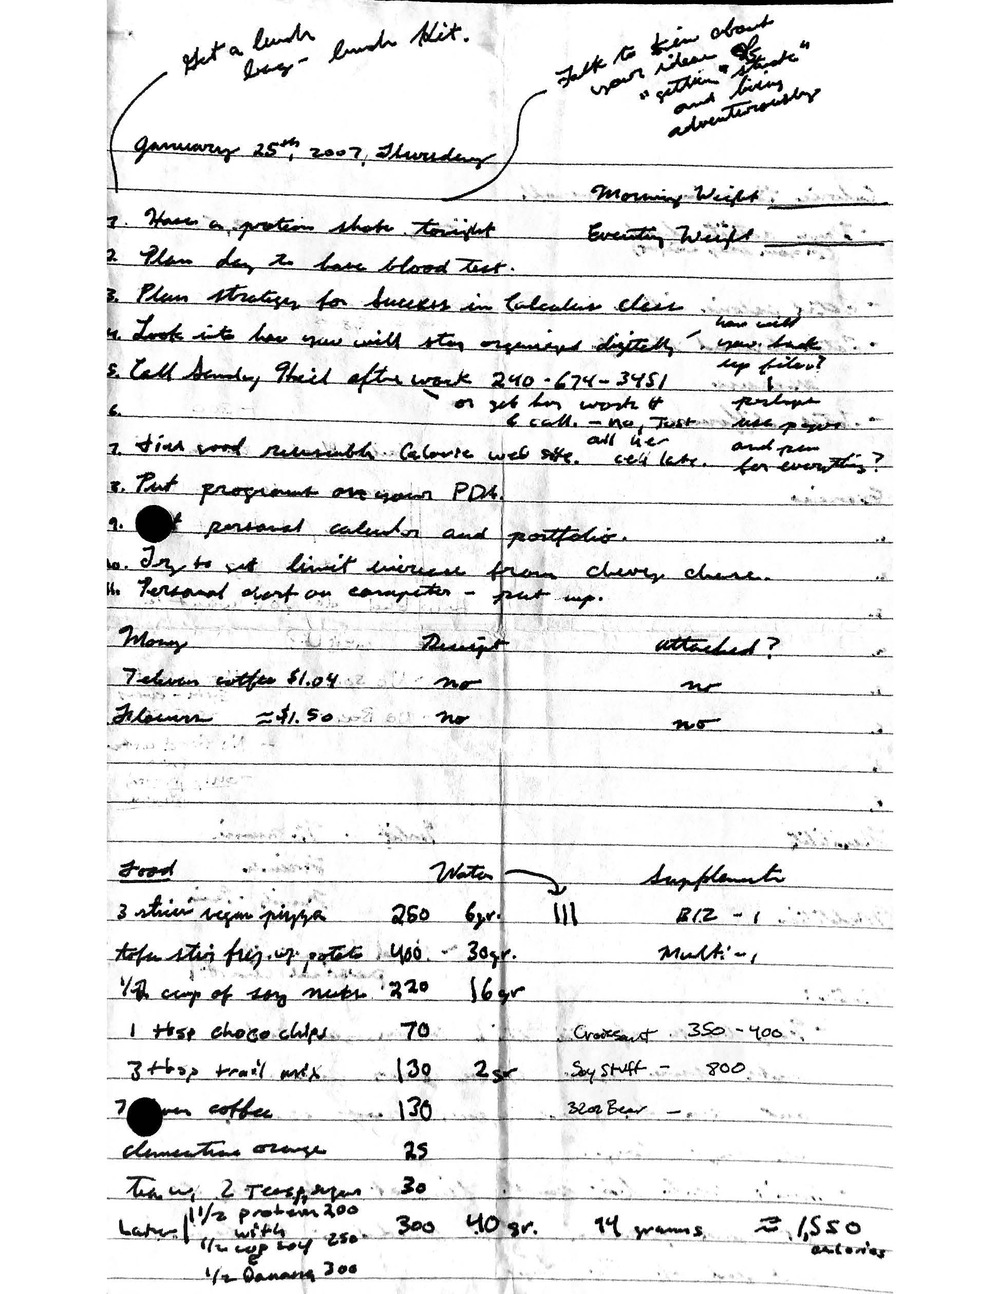 Get a lunch
bag - lunch kit.
Talk to Kim about
your idea of
"gettin" stuck"
and being
adventurously
January 25th, 2007, Thursday
Morning Weight
1. Have a protein shake tonight
Evening Weight
2. Plan day to have blood test.
3. Plan strategy for Success in Calculus class
4. Look into how you will stay organized digitally - how will
you back
up files?
perhaps
use paper
and pen
for everything?
5. Call Sandy, Theil after work 240-674-3451
or get her work #
& call. - no, Just
call her
cell late.
6.
7. Find good reasonable Calorie web site.
8. Put programs on your PDA.
9. personal calendar and portfolio.
10. Try to get limit increase from chevy chase.
11. Personal chart on computer - put up.
Money Receipt attached?
7 eleven coffee $1.04 no no
Flowers ≈$1.50 no no
Food Water Supplements
3 slices vegan pizza 250 6gr. III B12 - 1
tofu stir fry w/ potato 400 - 30gr. Multi - 1
1/2 cup of soy nuts 220 16gr
1 tbsp choco chips 70 Croissant 350-400
3 tbsp trail mix 130 2gr Soy Stuff - 800
7 coffee 130 32oz Beer -
clementine orange 25
Tea w/ 2 Teasp. sugar 30
Later 1 1/2 protein 200 300 40 gr. 94 grams ≈ 1,550
calories
with
1/2 cup soy 250
&
1/2 Banana 300